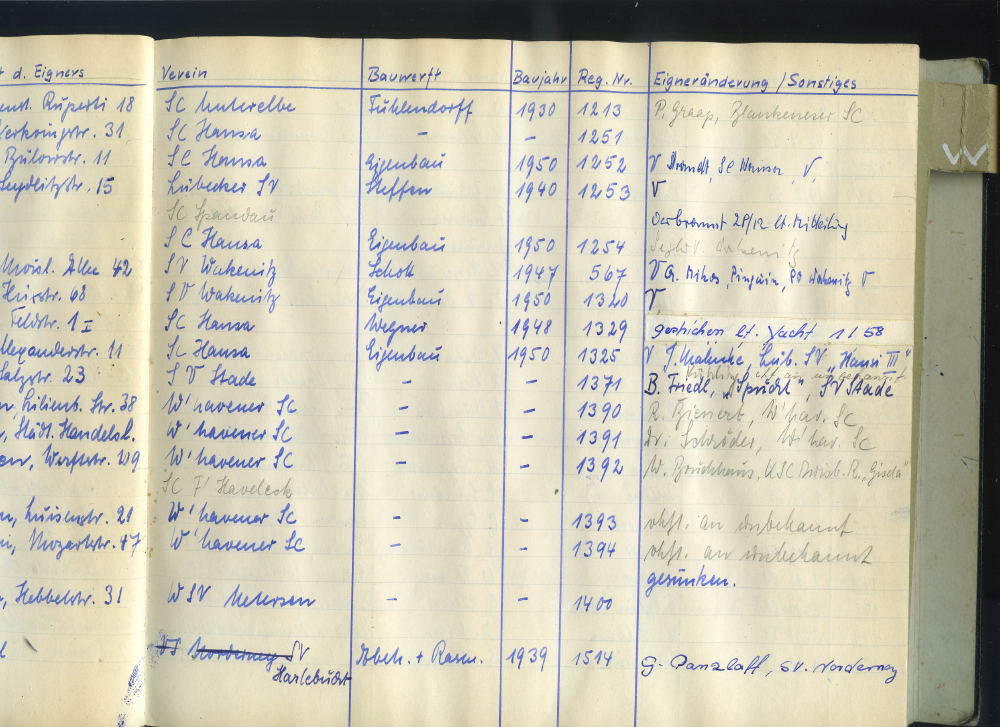 d. Eigners Verein Bauwerft Baujahr Reg. Nr. Eigneränderung / Sonstiges
Ruperti 18 SC Unterelbe Fuhlendorff 1930 1213 P. Graap, Blankeneser SC
str. 31 SC Hansa – – 1251
Bülowstr. 11 SC Hansa Eigenbau 1950 1252 V SC Hansa, V,
Seydlitzstr. 15 Lübecker SV Steffen 1940 1253 V
SC Spandau verbrannt 28/12 lt. Mitteilung
SC Hansa Eigenbau 1950 1254
Moisl. Allee 42 SV Wakenitz Schok 1947 567 V G. Mikos, Pinguin, Wakenitz V
Hüxstr. 68 SV Wakenitz Eigenbau 1950 1320 V
Feldstr. 1 I SC Hansa Wegner 1948 1329 gestrichen lt. Yacht 1 1 58
Alexanderstr. 11 SC Hansa Eigenbau 1950 1325 V J. Malucke, Lüb. SV „Hansi III"
Salzstr. 23 SV Stade – – 1371 B. Friedl, „Sprücht", SV Stade
Lilienb. Str. 38 W'havener SC – – 1390 R. Bienert, W'hav. SC
, Städt. Handelsl. W'havener SC – – 1391 Dr. Schröder, W'hav. SC
, Werftstr. 29 W'havener SC – – 1392 W. Bruchhaus, USC Duisb. R. „Gisela"
SC F' Haveleck
n, Luisenstr. 21 W'havener SC – – 1393 an unbekannt
, Mozartstr. 47 W'havener SC – – 1394 an unbekannt
gesunken.
, Hebbelstr. 31 WSV Uetersen – – 1400
Norderney SV Abek. + Rasm. 1939 1514 G. Panzlaff, SV. Norderney
Harlebucht